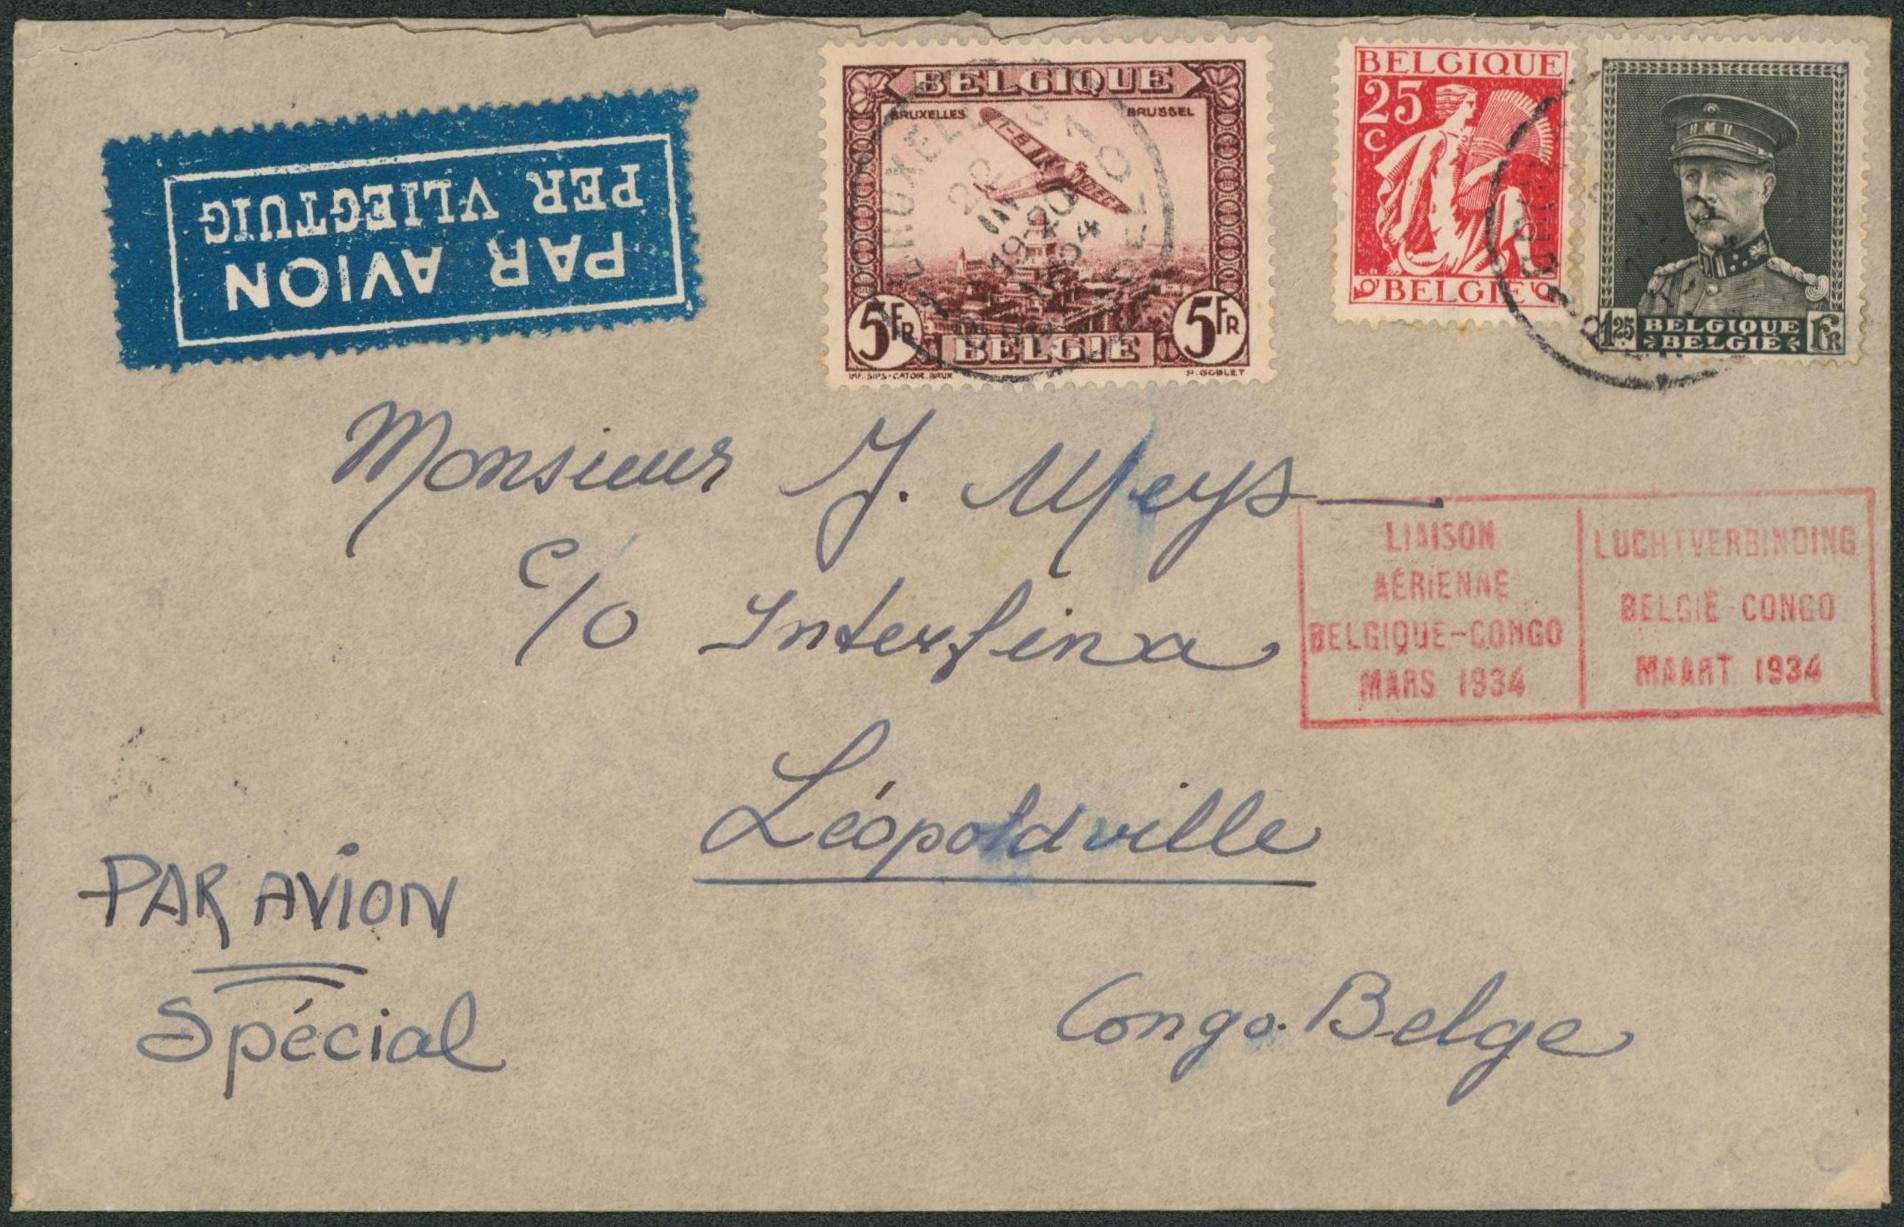 PAR AVION
PER VLIEGTUIG
BELGIQUE
BRUXELLES BRUSSEL
5 FR 5 FR
BELGIE
IMP. SIPS-CATOIR. BRUX P. GOBLET
BELGIQUE
25
C
BELGIE
1.25 BELGIQUE FR
BELGIE
22
III
19-20
1934
Monsieur J. Meys
c/o Interfina
Léopoldville
Congo Belge
LIAISON
AÉRIENNE
BELGIQUE-CONGO
MARS 1934
LUCHTVERBINDING
BELGIË CONGO
MAART 1934
PAR AVION
Spécial